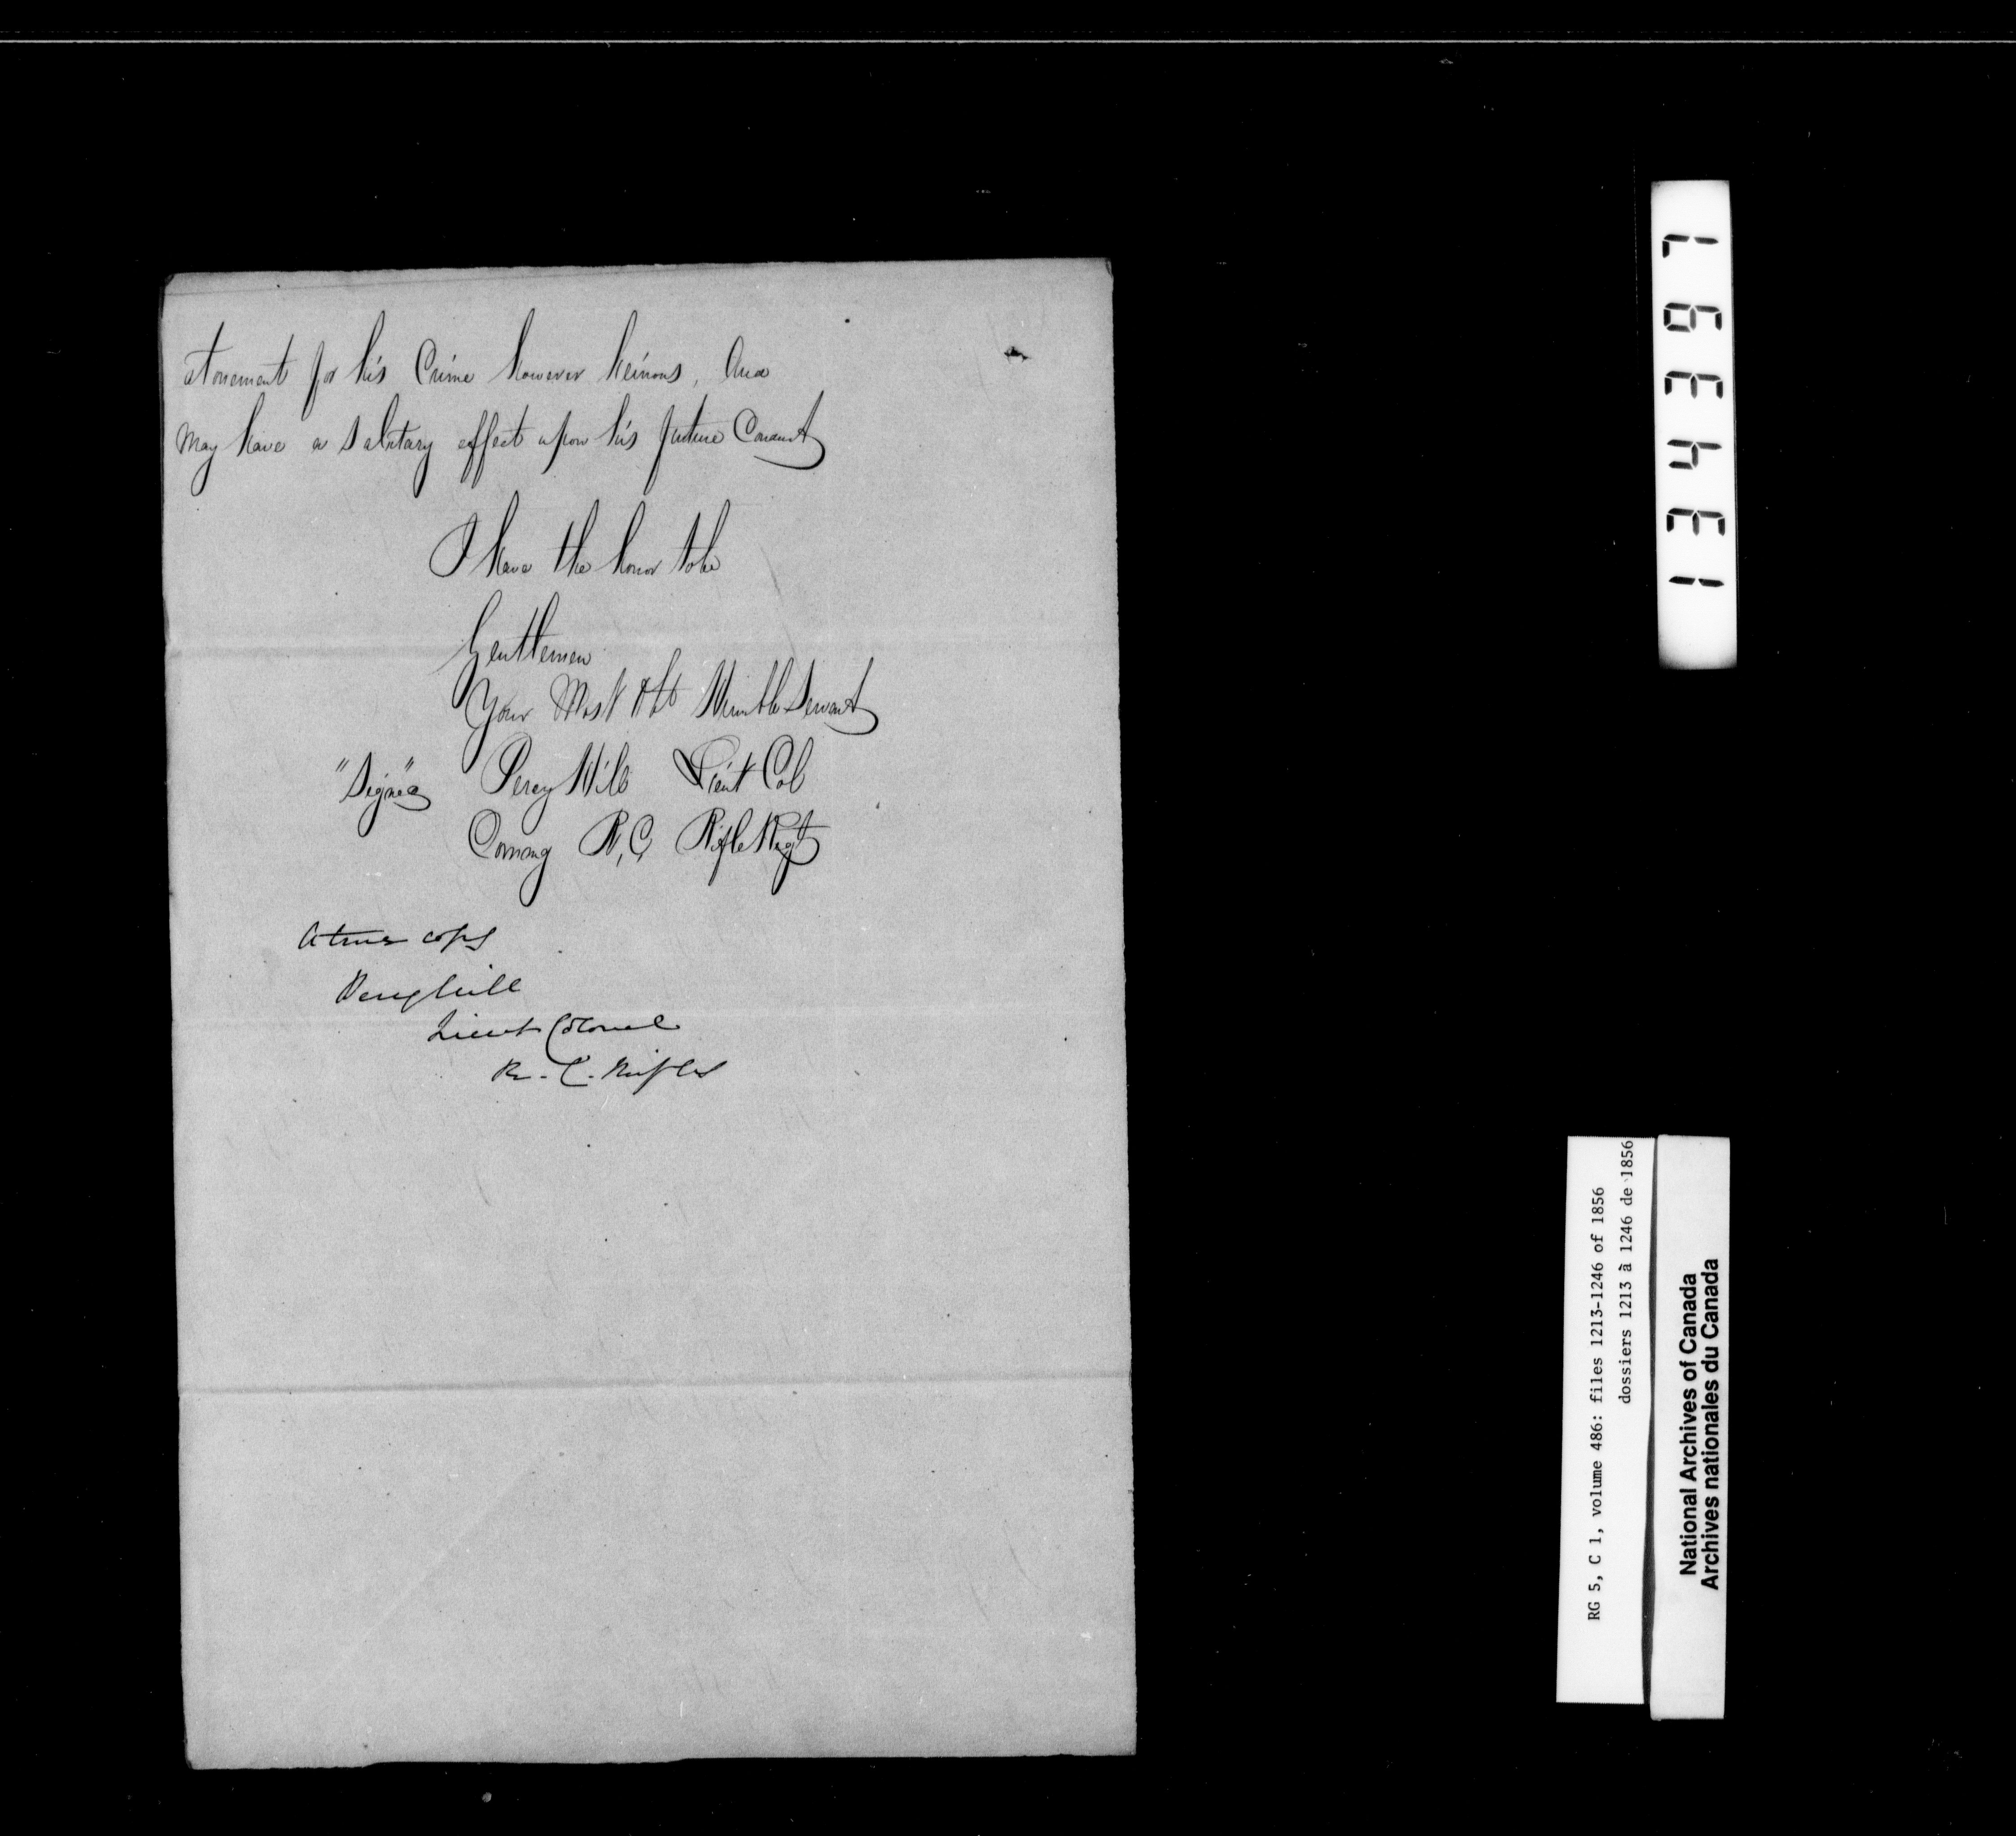 atonement for his Crime however heinous, And
May have a Salutary effect upon his future Conduct
I have the honor to be
Gentlemen
Your Most Obt Humble Servant
"Signed" Percy Hill Lieut Col
Commg R, C, Rifle Regt
A true copy
Percy Hill
Lieut Colonel
R. C. Rifles
134397
RG 5, C 1, volume 486: files 1213-1246 of 1856
dossiers 1213 à 1246 de 1856
National Archives of Canada
Archives nationales du Canada